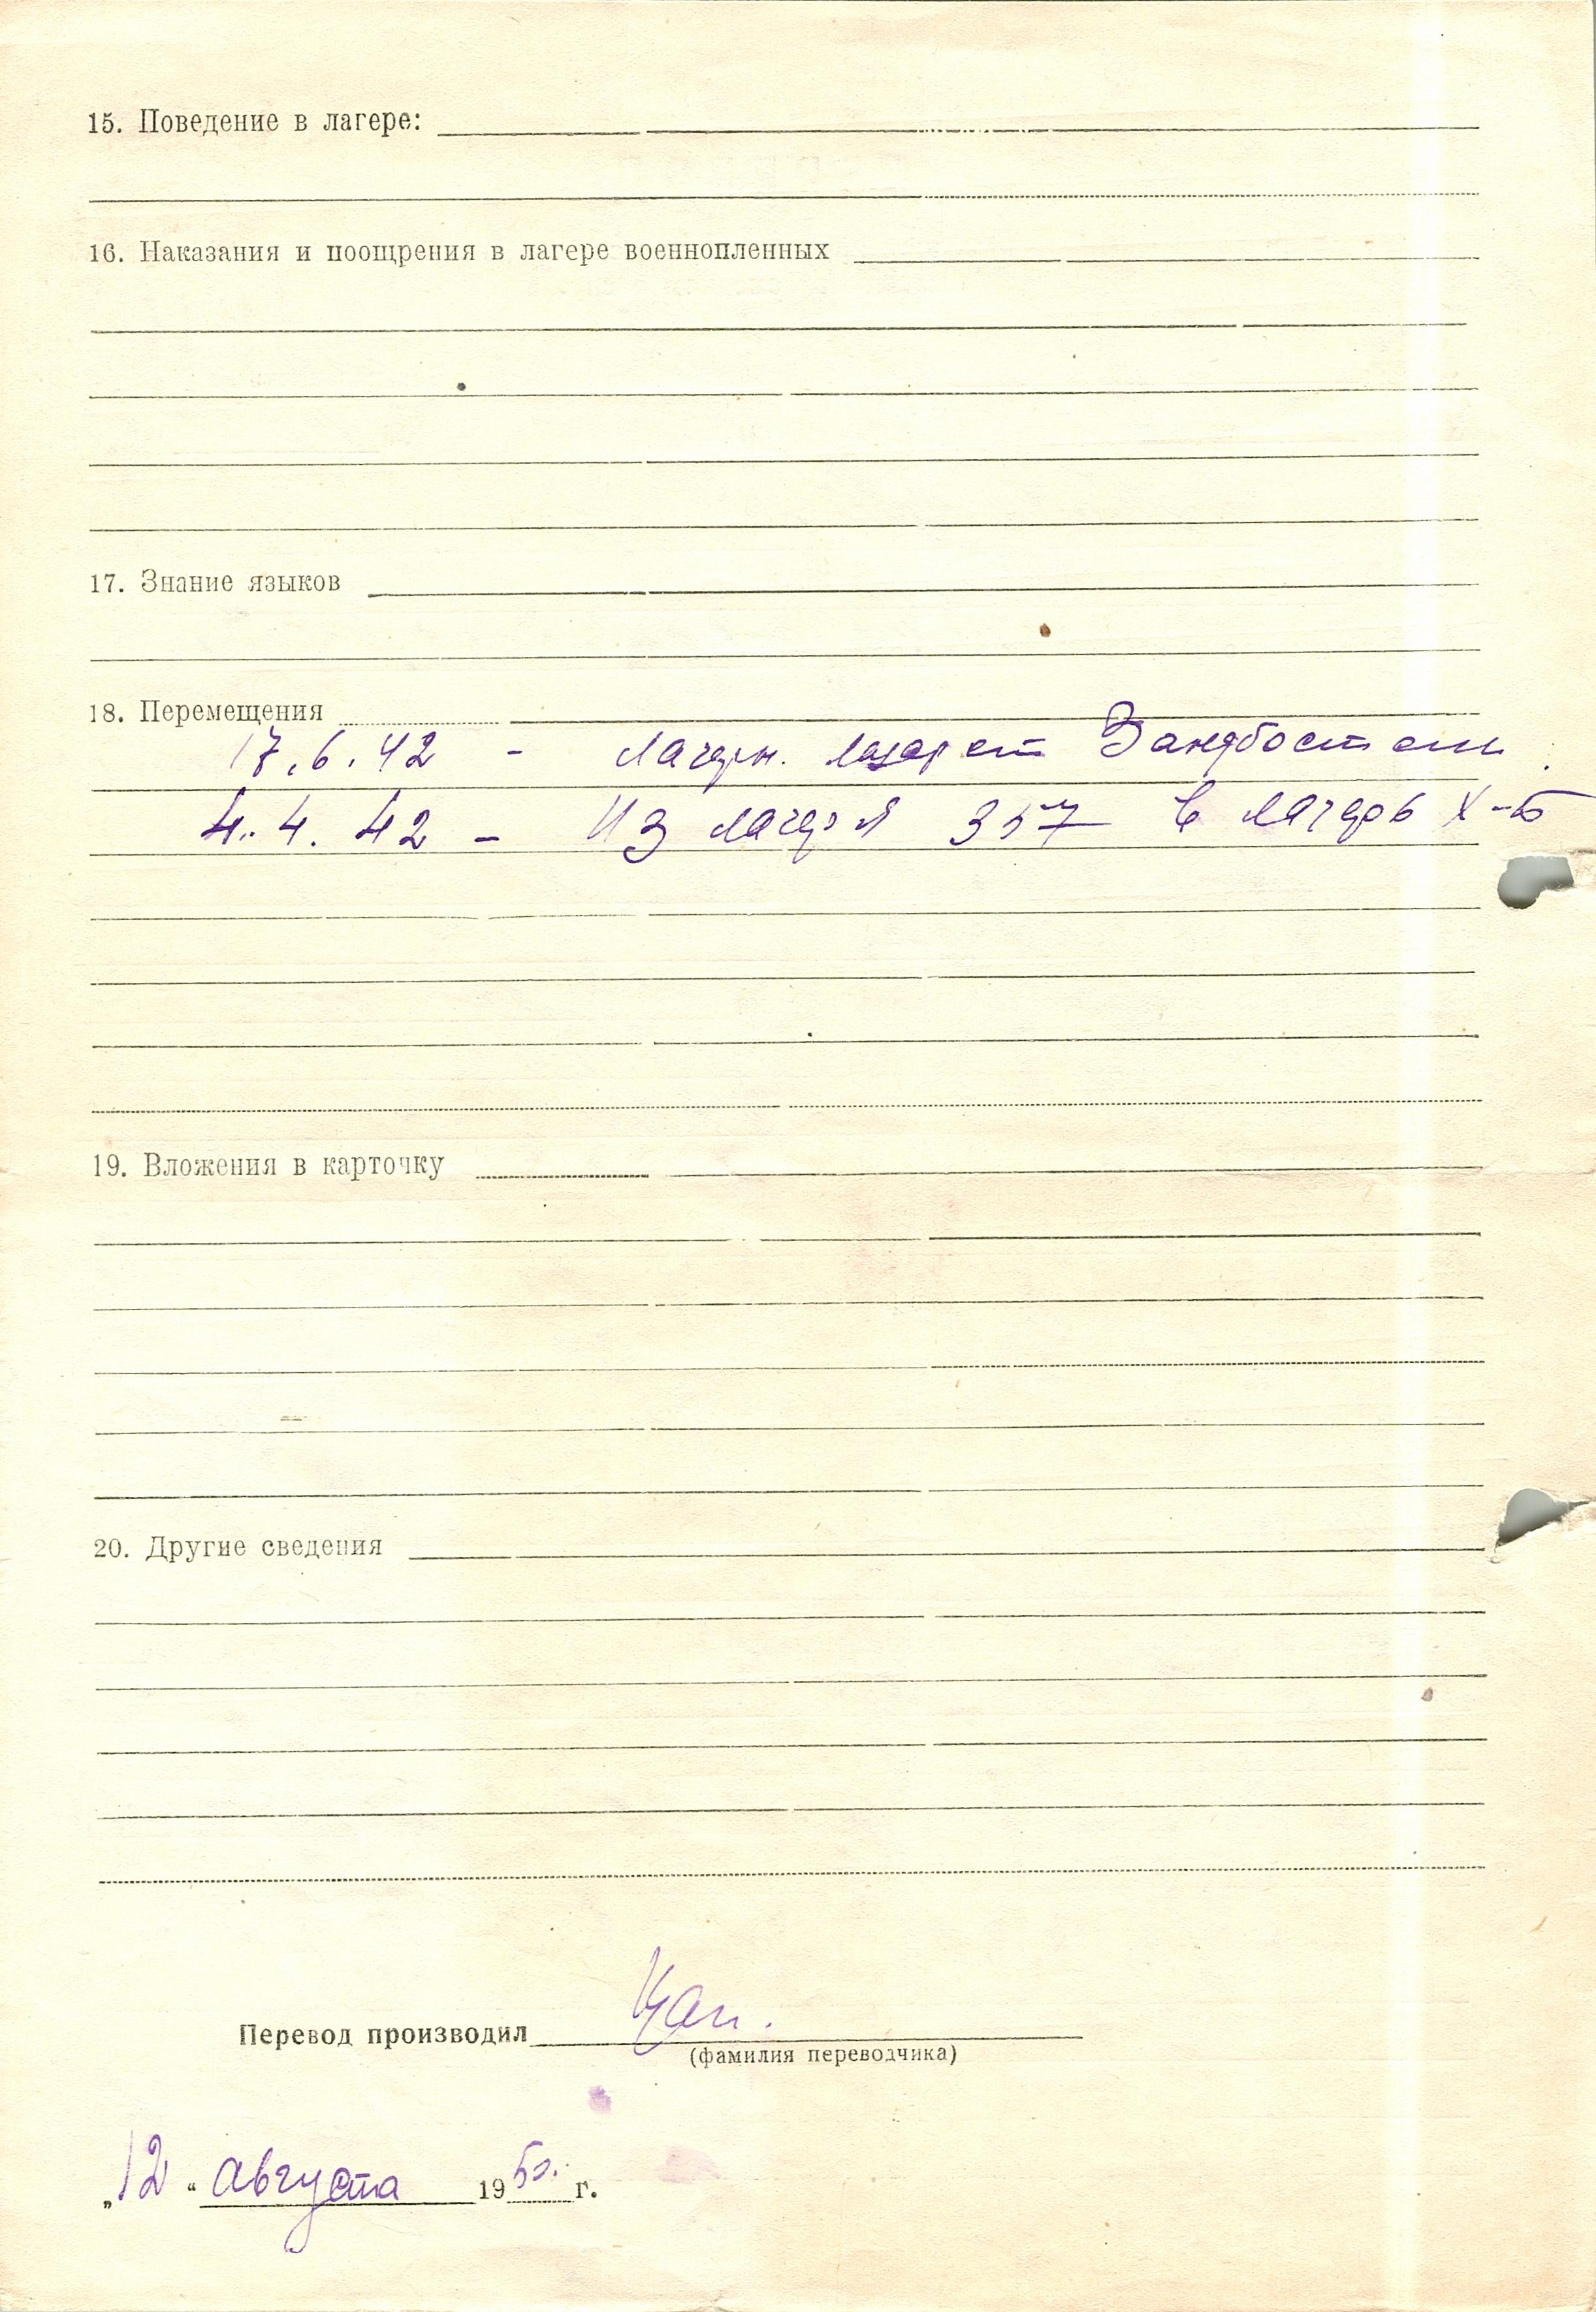 15. Поведение в лагере:
16. Наказания и поощрения в лагере военнопленных
17. Знание языков
18. Перемещения
17.6.42 - лагерн. лазарет Зандбостель.
4.4.42 - Из лагеря 357 в лагерь X-Б
19. Вложения в карточку
20. Другие сведения
Перевод производил
(фамилия переводчика)
„12“ августа 1950. г.